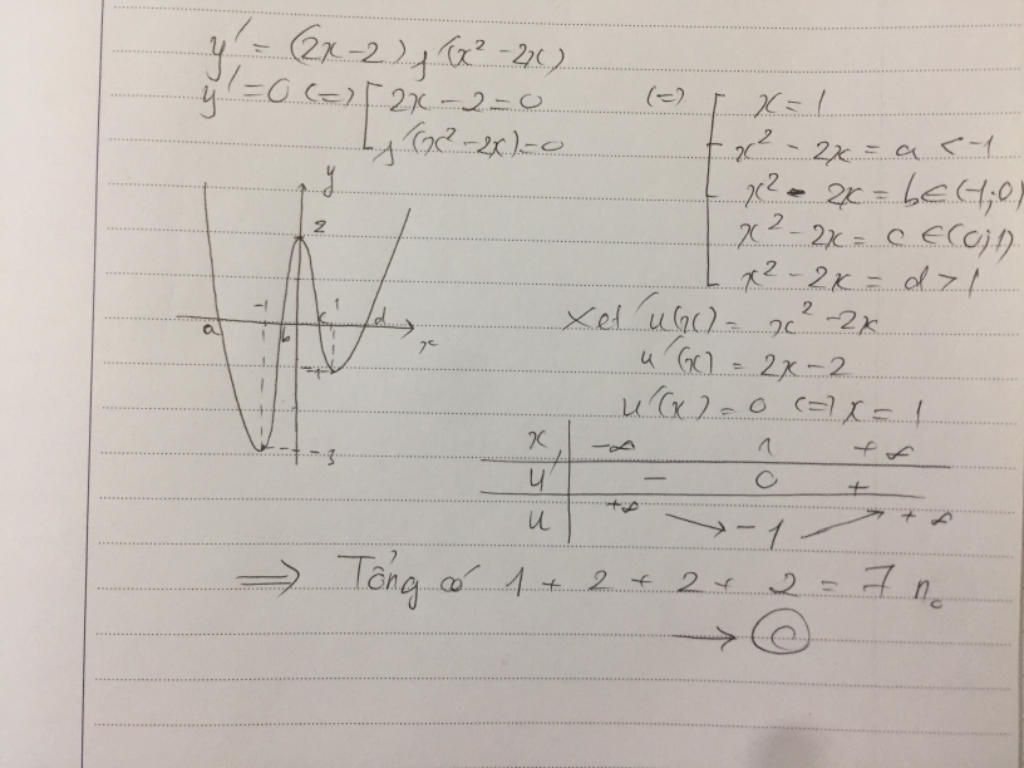 y' = (2x-2) f'(x² - 2x)
y' = 0 (=) [ 2x - 2 = 0
f'(x² - 2x) = 0
(=) [ x = 1
x² - 2x = a < -1
x² - 2x = b ∈ (-1; 0)
x² - 2x = c ∈ (0; 1)
x² - 2x = d > 1
y
2
-1 1
a b c d
x
-1
-3
Xét u(x) = x² - 2x
u'(x) = 2x - 2
u'(x) = 0 (=) x = 1
x -∞ 1 +∞
u' - 0 +
u +∞ -1 +∞
=> Tổng có 1 + 2 + 2 + 2 = 7 n₀
→ C